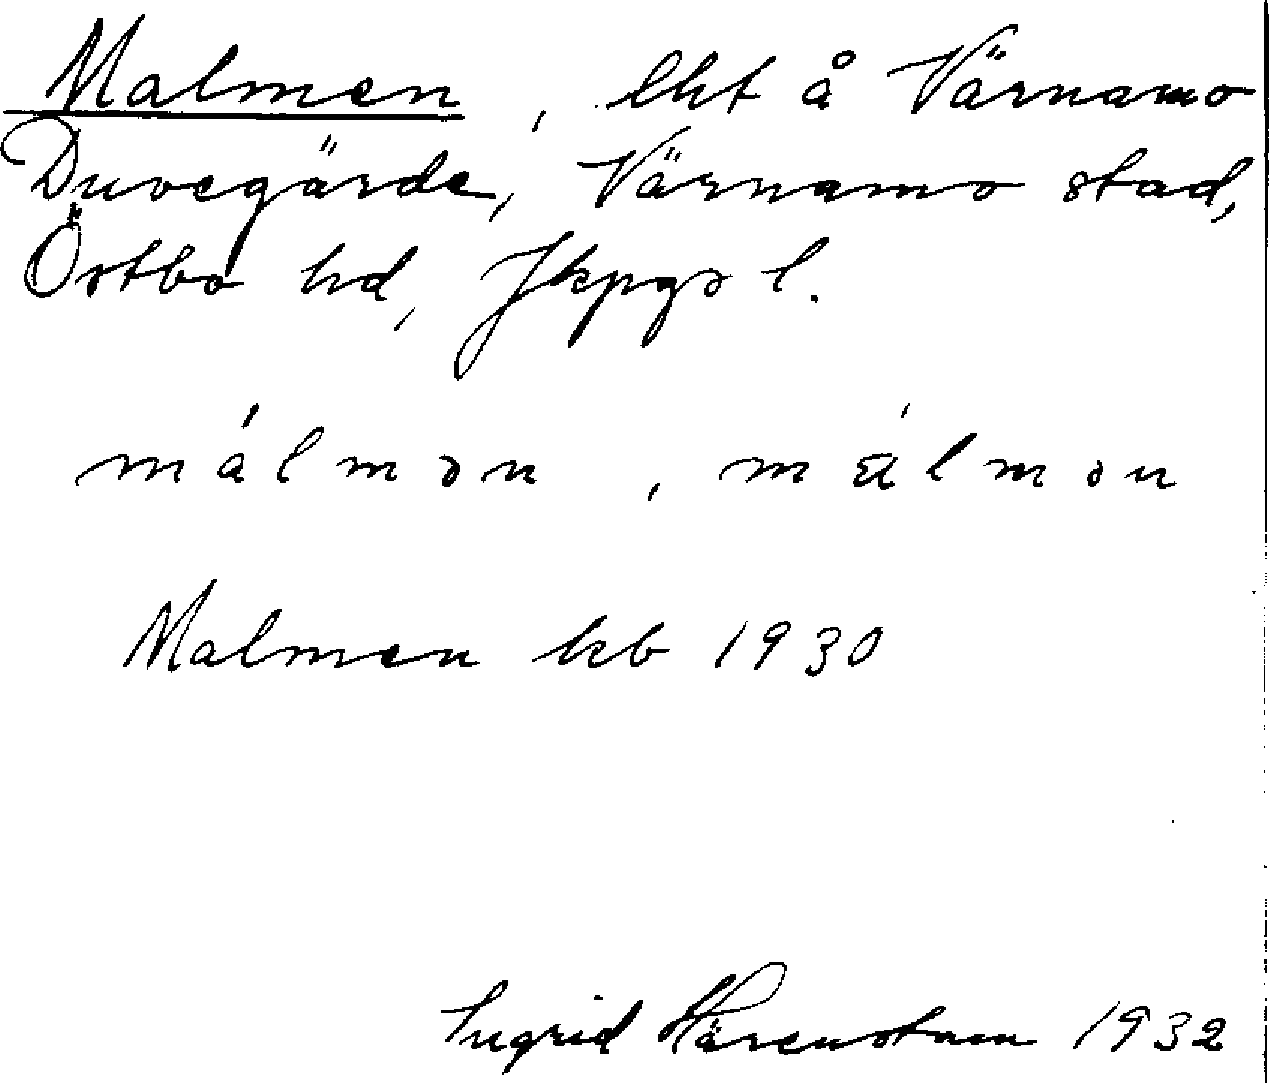 Malmen, lht å Värnamo
Duvegärde, Värnamo stad,
Östbo hd, Jkpgs l.
málmən, málmən
Malmen kb 1930
Ingrid Härenstam 1932